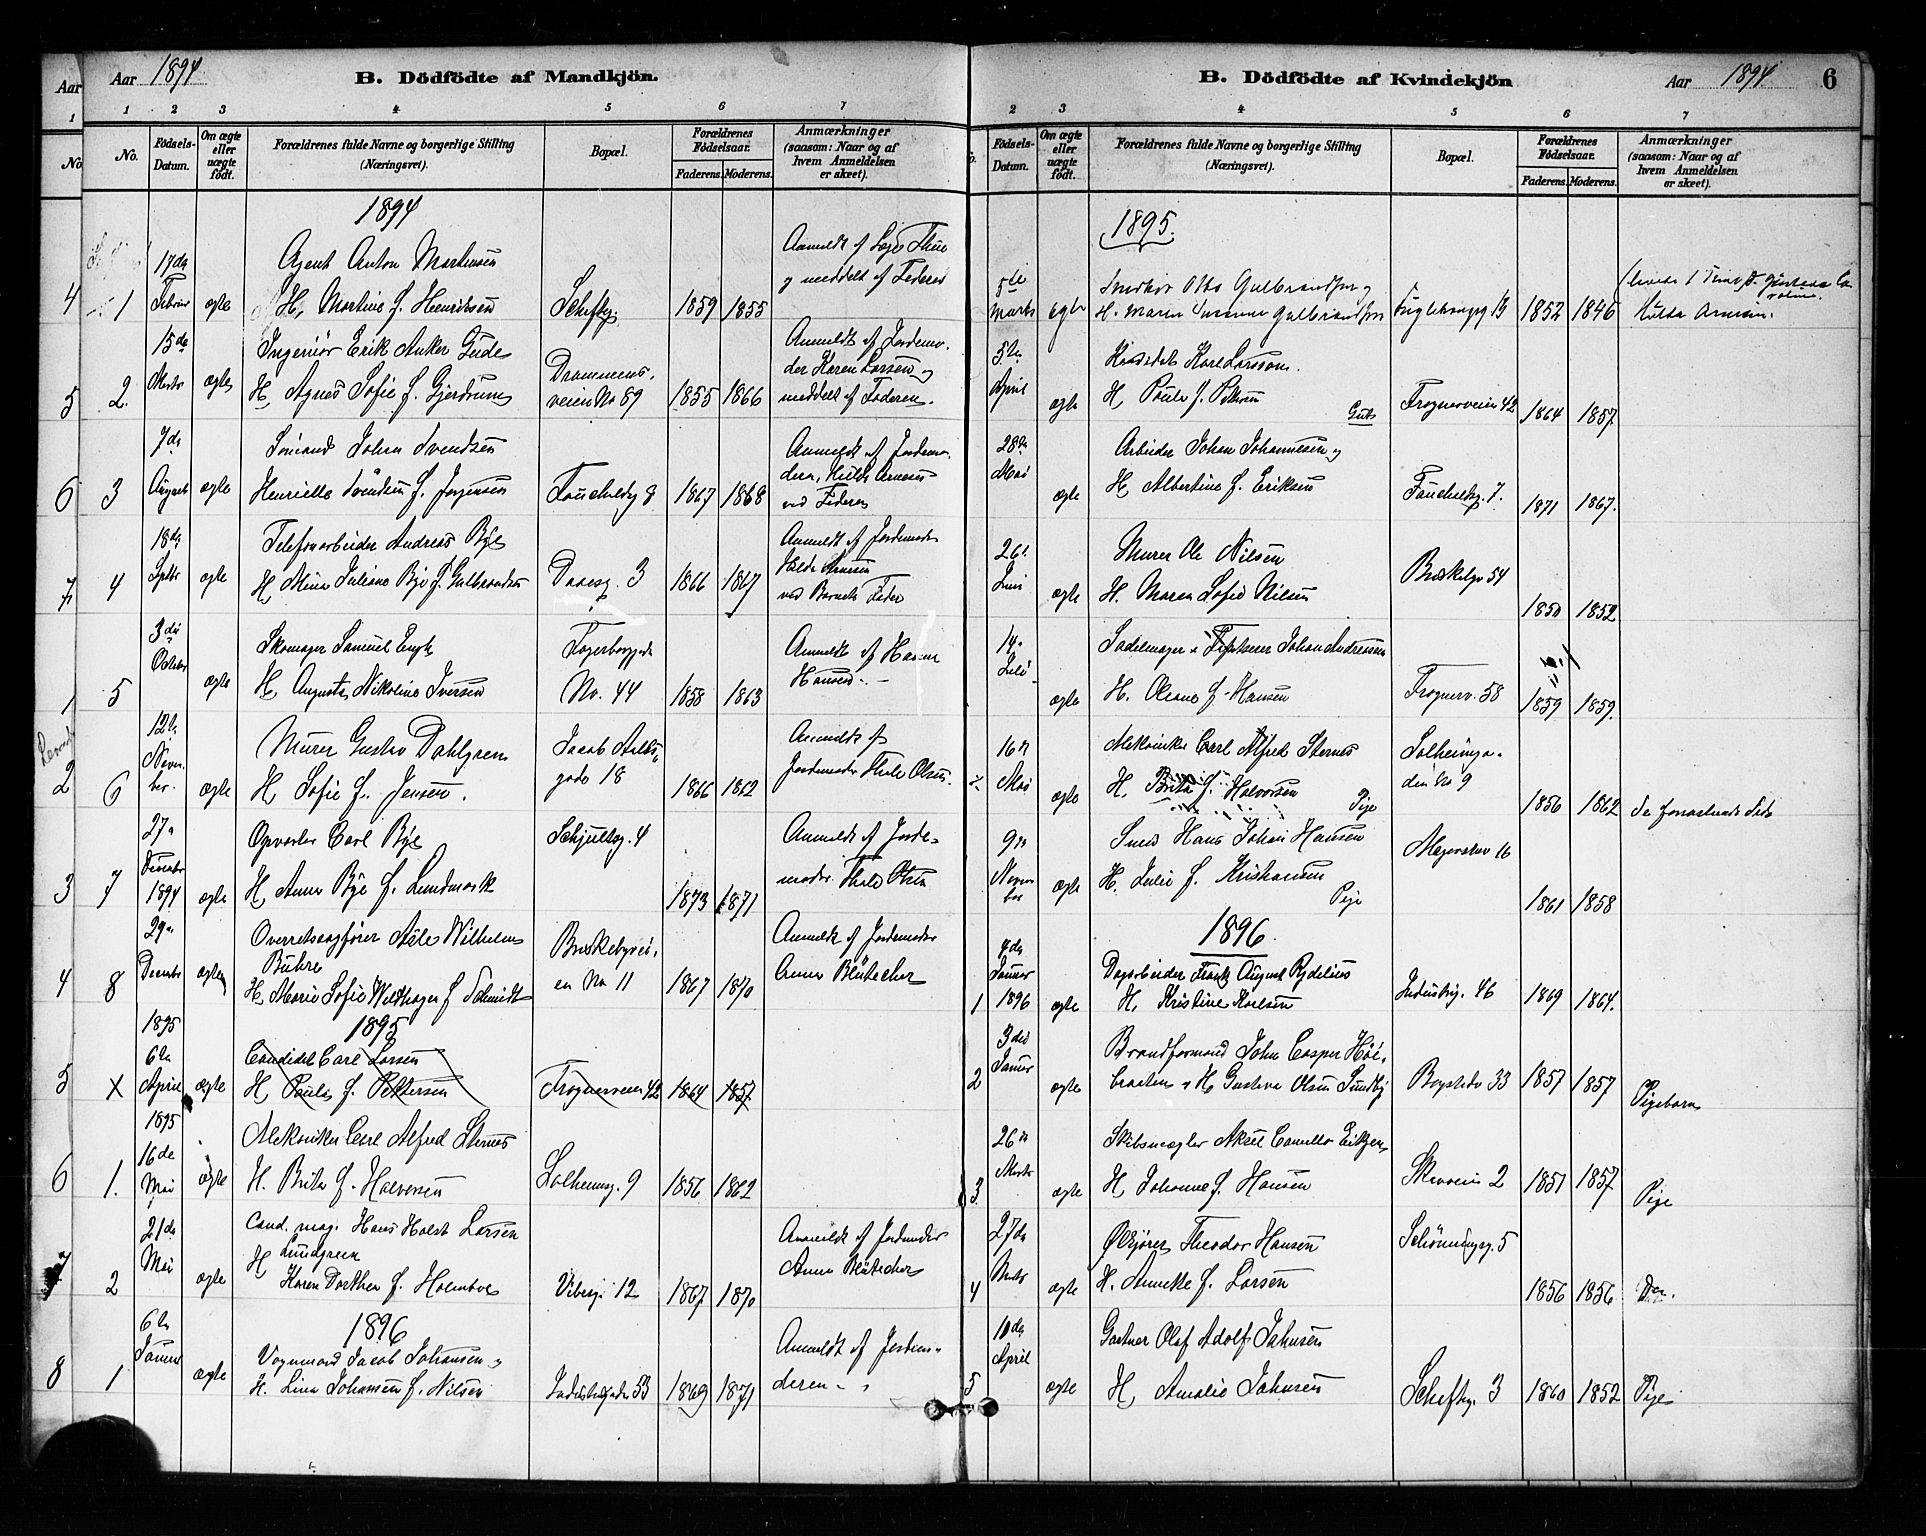 Aar 1894.
B. Dödfödte af Mandkjön.
Aar
1 2 3 4 5 6 7
No.
Födsels-Datum.
Om ægte eller uægte födt.
Forældrenes fulde Navne og borgerlige Stilling (Næringsvei).
Bopæl.
Forældrenes Födselsaar.
Faderens. Moderens.
Anmærkninger (saasom: Naar og af hvem Anmeldelsen er skeet).
1894
17de Agent Anton Martinsen Anmeldt af Læge Thue
og meddelt af Faderen
4 1 Februar ægte H. Martine f. Henriksen 1859 1855
15de Ingeniör Erik Anker Gude Anmeldt af Jordemo-
Drammens- der Karen Larsen og
5 2. Marts ægte H. Agnes Sofie f. Gjerdrum veien No 89 1855 1866 meddelt af Faderen.
7de Sömand Johan Svendsen Anmeldt af Jordemo-
6 3 August ægte Henriette Svendsen f. Jörgensen Fauchaldsg 8 1867 1868 deren, Hulda Arnesen
ved Faderen
18de Telefonarbeider Andreas Bye Anmeldt af Jordemoder
7 4 Septbr ægte H. Mina Juliane Bye f. Gulbrandsen Daasg. 3 1866 1867 Hulda Arnesen
ved Barnets Fader
3die Skomager Samuel Engh Anmeldt af Hanna
October Hansen.
1 5 ægte H. Augusta Nikoline Iversen No. 44 1858 1863
12te Murer Gustav Dahlgren Jacob Aalls Anmeldt af
2 6 Novem-ber. ægte H. Sofie f. Jensen. gade 18 1866 1862 Jordemoder Thale Olsen.
27de Opvarter Carl Bye Schjultzg. 4 Anmeldt af Jorde-
3 7 December 1894 ægte H. Anna Bye f. Lundmark 1873 1871 moder Thale Olsen
29de Overretssagförer Atle Wilhelm Anmeldt af Jordemoder
Buhre Briskebyvei-
4 8 Decembr ægte H. Marie Sofie f. Schmidt en No 11 1867 1870 Anna Blütecher
1895
1895
6te Candidat Carl Larsen
5 X April ægte H. Paula f. Pettersen Frognerveien 42 1864 1857
1895
16de Mekaniker Carl Alfred Sternes
6 1. Mai ægte H. Brita f. Halvorsen Solheimsg. 9 1856 1862
21de Cand. mag. Hans Holst Larsen Anmeldt af Jordemoder
Lundgreen
7 2 Mai ægte H. Karen Dorthea f. Holmboe Vibesg. 12 1867 1870 Anna Blütecher
1896
6te Vognmand Jacob Johansen og Anmeldt af Jordemo-
8 1 Januar ægte H. Lina Johansen f. Nilsen Industrigaden 53 1869 1871 deren
B. Dödfödte af Kvindekjön
Aar 1894 6
2 3 4 5 6 7
Födsels-Datum.
Om ægte eller uægte födt.
Forældrenes fulde Navne og borgerlige Stilling (Næringsvei).
Bopæl.
Forældrenes Födselsaar.
Faderens. Moderens.
Anmærkninger (saasom: Naar og af hvem Anmeldelsen er skeet).
1895.
5te Snedker Otto Gulbrandsen og
Marts ægte H. Maren Gulbrandsen 1852 1846 Hulda Arnesen.
5te Karl Larsson.
April ægte H. Paula f. Pettersen Gut Frognerveien 42 1864 1857
28de Arbeider Johan Johannesen og
Mai ægte H. Albertine f. Eriksen Fauchaldsg. 7. 1871 1867.
26. Murer Ole Nilsen Briskebyv 54
Juni ægte H. Maren Sofie Nilsen 1850 1852
14. Sadelmager & Johan Andreassen
Juli ægte H. Oleane f. Hansen Frognerv. 58 1859 1859.
16de Mekaniker Carl Alfred Sternes Solheimga-
Mai ægte H. Brita f. Halvorsen Pige den No 9 1856 1862
9de Smed Hans Johan Hansen 16
Novem-ber ægte H. Julie f. Kristiansen Pige 1861 1858
1896
4de Dagarbeider Frantz August Rydelius
1 Januar 1896 ægte H. Kristine Karlsen Industrig. 46 1869 1864.
3die Brandformand John Casper Höi-
2 Januar ægte braaten & H. Gustava Olsen Sundby Bogstadv 33 1857 1857 Pigebarn
26de Skibsmægler Aksel Camillo Eitzen
3. Marts ægte H. Johanne f. Hansen Skovveien 2 1851 1857 Pige
27de Ölkjörer Theodor Hansen Schöningsg. 5
4 Marts ægte H. Annette f. Larsen 1856 1856 Do.
10de Gartner Olaf Adolf Johnsen
5 April ægte H. Amalie Johnsen 3 1860 1852 Pige